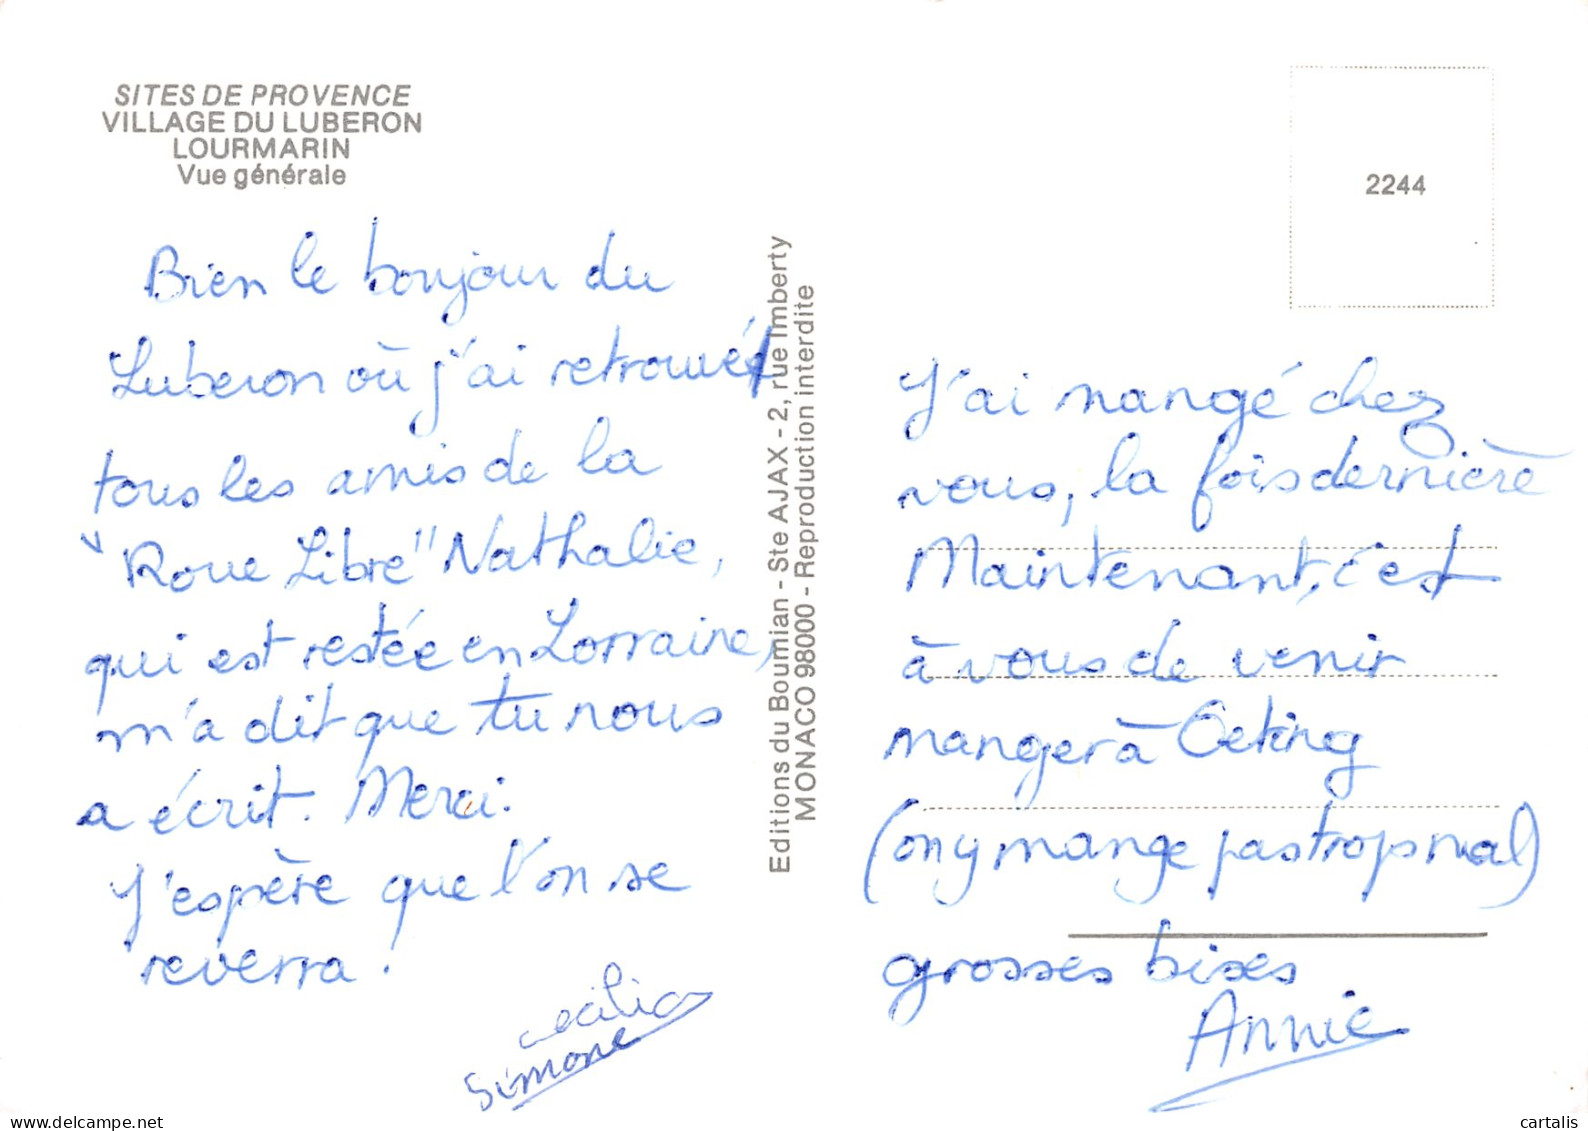 SITES DE PROVENCE
VILLAGE DU LUBERON
LOURMARIN
Vue générale
Bien le bonjour du
Luberon où j'ai retrouvé
tous les amis de la
"Roue Libre" Nathalie,
qui est restée en Lorraine,
m'a dit que tu nous
a écrit. Merci.
J'espère que l'on se
reverra !
Cecilia
Simone
Editions du Boumian - Ste AJAX - 2, rue Imberty
MONACO 98000 - Reproduction interdite
2244
J'ai mangé chez
vous, la fois dernière
Maintenant, c'est
à vous de venir
manger à Oeting
(on y mange pas trop mal)
grosses bises
Annie
delcampe.net
cartalis